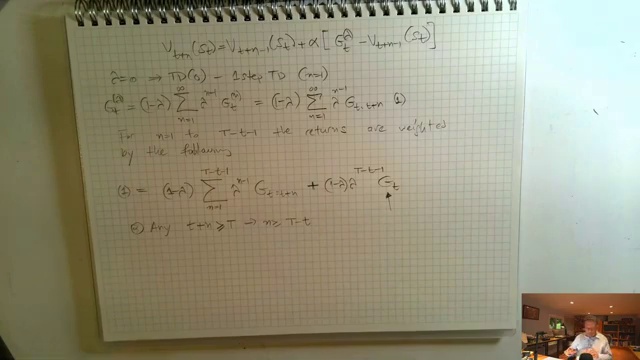 V_{t+n}(S_t) = V_{t+n-1}(S_t) + α [ G_t^λ - V_{t+n-1}(S_t) ]
λ=0 ⇒ TD(0) - 1 step TD (n=1)
G_t^{(λ)} = (1-λ) ∑_{n=1}^{∞} λ^{n-1} G_t^{(n)} = (1-λ) ∑_{n=1}^{∞} λ^{n-1} G_{t:t+n} (1)
For n=1 to T-t-1 the returns are weighted
by the following
(1) = (1-λ) ∑_{n=1}^{T-t-1} λ^{n-1} G_{t:t+n} + (1-λ) λ^{T-t-1} G_t
Any t+n ≥ T → n ≥ T-t